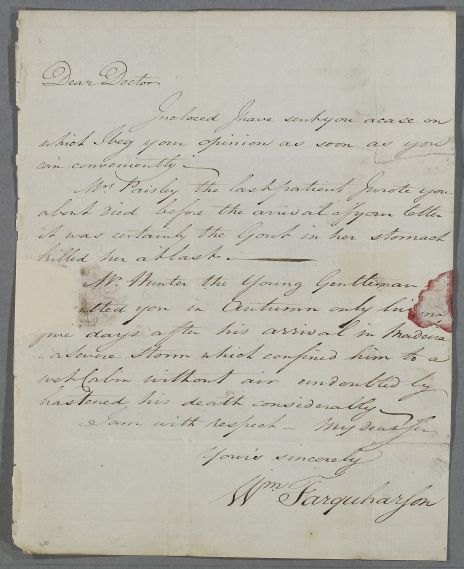 Dear Doctor
Inclosed I have sent you a case on
which I beg your opinion as soon as you
can conveniently.
Mrs Paisley the last patient I wrote you
about died before the arrival of your letter
it was certainly the Gout in her stomach
killed her at last.
Mr. Hunter the Young Gentleman
you in Autumn only
five days after his arrival in Madeira
a severe storm which confined him to a
wet Cabin without air undoubted by
hastened his death considerably
I am with respect - My dear Sir
Your's sincerely
Wm Farquharson